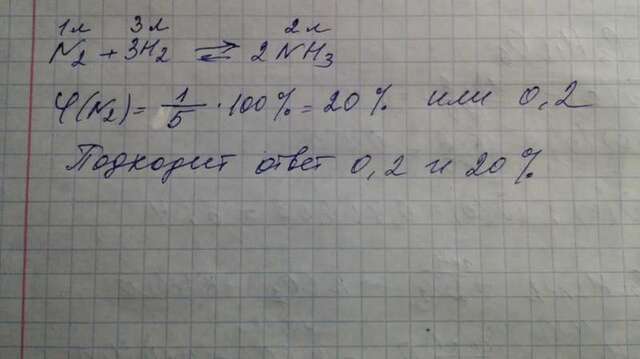 1л 3л 2л
N₂ + 3H₂ ⇌ 2NH₃
φ(N₂) = 1/5 · 100% = 20% или 0,2
Подходит ответ 0,2 и 20%